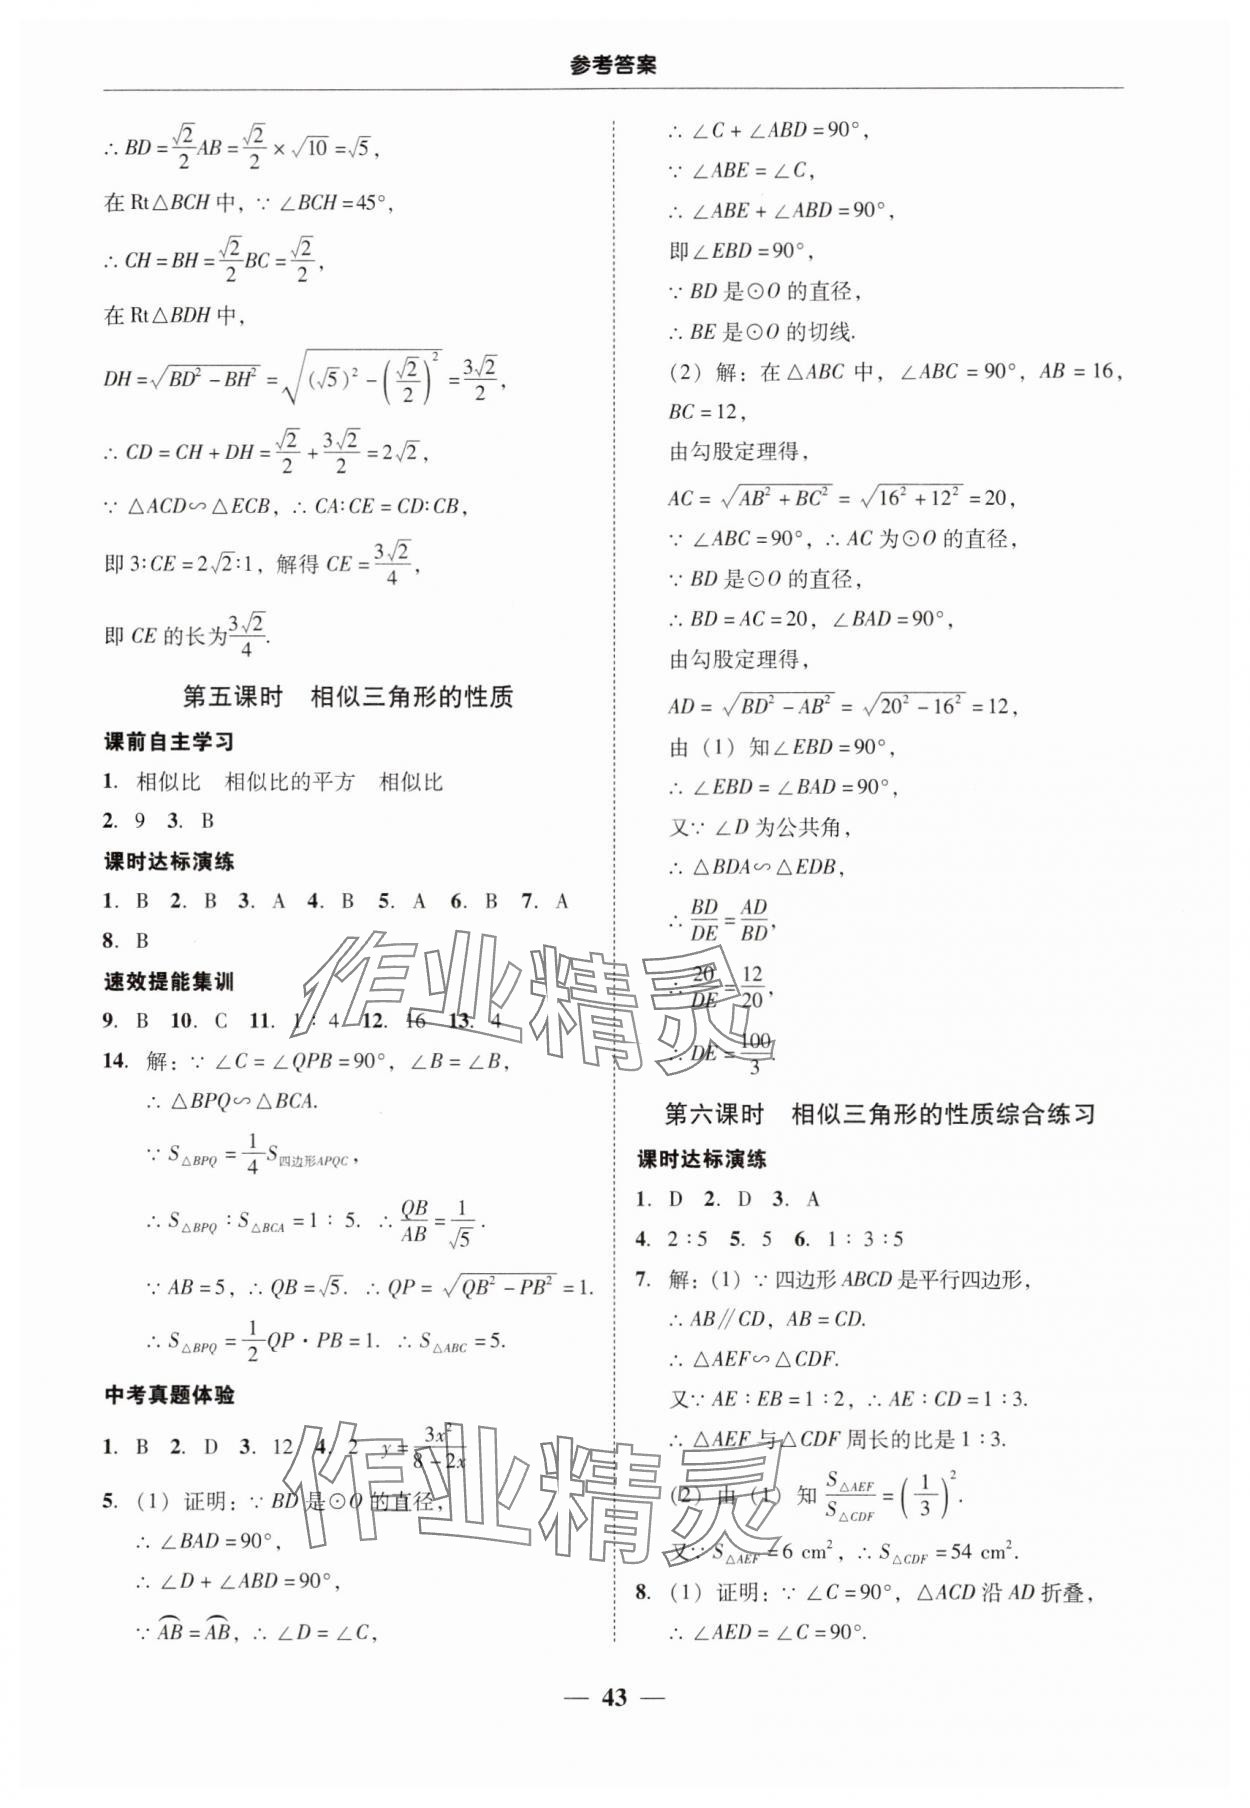 参考答案
∴ BD = √2/2 AB = √2/2 × √10 = √5,
在 Rt△BCH 中, ∵ ∠BCH = 45°,
∴ CH = BH = √2/2 BC = √2/2,
在 Rt△BDH 中,
DH = √(BD² − BH²) = √((√5)² − (√2/2)²) = 3√2/2,
∴ CD = CH + DH = √2/2 + 3√2/2 = 2√2,
∵ △ACD∽△ECB, ∴ CA∶CE = CD∶CB,
即 3∶CE = 2√2∶1, 解得 CE = 3√2/4,
即 CE 的长为 3√2/4.
第五课时 相似三角形的性质
课前自主学习
1. 相似比 相似比的平方 相似比
2. 9 3. B
课时达标演练
1. B 2. B 3. A 4. B 5. A 6. B 7. A
8. B
速效提能集训
9. B 10. C 11. 1∶4 12. 16 13. 4
14. 解: ∵ ∠C = ∠QPB = 90°, ∠B = ∠B,
∴ △BPQ∽△BCA.
∵ S△BPQ = 1/4 S四边形APQC,
∴ S△BPQ∶S△BCA = 1∶5. ∴ QB/AB = 1/√5.
∵ AB = 5, ∴ QB = √5. ∴ QP = √(QB² − PB²) = 1.
∴ S△BPQ = 1/2 QP·PB = 1. ∴ S△ABC = 5.
中考真题体验
1. B 2. D 3. 12 4. 2 y = 3x²/(8 − 2x)
5. (1) 证明: ∵ BD 是⊙O 的直径,
∴ ∠BAD = 90°,
∴ ∠D + ∠ABD = 90°,
∵ ⌒AB = ⌒AB, ∴ ∠D = ∠C,
∴ ∠C + ∠ABD = 90°,
∵ ∠ABE = ∠C,
∴ ∠ABE + ∠ABD = 90°,
即∠EBD = 90°,
∵ BD 是⊙O 的直径,
∴ BE 是⊙O 的切线.
(2) 解: 在△ABC 中, ∠ABC = 90°, AB = 16,
BC = 12,
由勾股定理得,
AC = √(AB² + BC²) = √(16² + 12²) = 20,
∵ ∠ABC = 90°, ∴ AC 为⊙O 的直径,
∵ BD 是⊙O 的直径,
∴ BD = AC = 20, ∠BAD = 90°,
由勾股定理得,
AD = √(BD² − AB²) = √(20² − 16²) = 12,
由 (1) 知∠EBD = 90°,
∴ ∠EBD = ∠BAD = 90°,
又∵ ∠D 为公共角,
∴ △BDA∽△EDB,
∴ BD/DE = AD/BD,
∴ 20/DE = 12/20,
∴ DE = 100/3.
第六课时 相似三角形的性质综合练习
课时达标演练
1. D 2. D 3. A
4. 2∶5 5. 5 6. 1∶3∶5
7. 解: (1) ∵ 四边形 ABCD 是平行四边形,
∴ AB∥CD, AB = CD.
∴ △AEF∽△CDF.
又∵ AE∶EB = 1∶2, ∴ AE∶CD = 1∶3.
∴ △AEF 与△CDF 周长的比是 1∶3.
(2) 由 (1) 知 S△AEF/S△CDF = (1/3)².
又∵ S△AEF = 6 cm², ∴ S△CDF = 54 cm².
8. (1) 证明: ∵ ∠C = 90°, △ACD 沿 AD 折叠,
∴ ∠AED = ∠C = 90°.
— 43 —
作业精灵
作业精灵